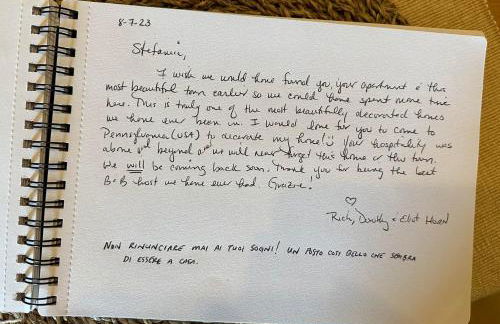 8-7-23
Stefania,
I wish we would have found you, your apartment & this
most beautiful town earlier so we could have spent more time
here. This is truly one of the most beautifully decorated homes
we have ever been in. I would love for you to come to
Pennsylvania (USA) to decorate my home! Your hospitality was
above and beyond and we will never forget this home or this town.
We will be coming back soon. Thank you for being the best
B&B host we have ever had. Grazie!
Rich, Dorothy & Eliot
NON RINUNCIARE MAI AI TUOI SOGNI! UN POSTO COSI BELLO CHE SEMBRA
DI ESSERE A CASA.